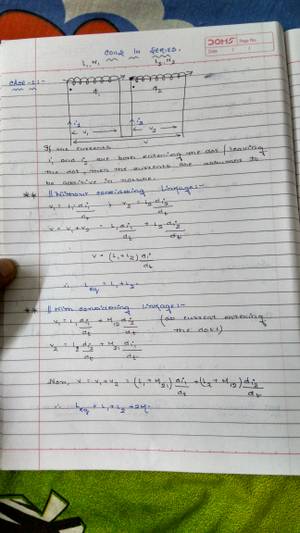 DOMS
Page No.
Date
COILS IN SERIES.
L₁, N₁ L₂, N₂
CASE-1:-
φ₁ φ₂
i₁ i₂
v₁ v₂
v
If the currents
i₁ and i₂ are both entering the dot / leaving
the dot, then the currents are assumed to
be positive in nature.
** Without considering linkage:-
v₁ = L₁ di₁/dt , v₂ = L₂ di₂/dt
v = v₁+v₂ = L₁ di₁/dt + L₂ di₂/dt
v = (L₁+L₂) di/dt
∴ Leq = L₁+L₂.
** With considering linkage:-
v₁ = L₁ di₁/dt + M₁₂ di₂/dt (as current entering
the dots)
v₂ = L₂ di₂/dt + M₂₁ di₁/dt
Now, v = v₁+v₂ = (L₁+M₂₁) di₁/dt + (L₂+M₁₂) di₂/dt
∴ Leq = L₁+L₂+2M.